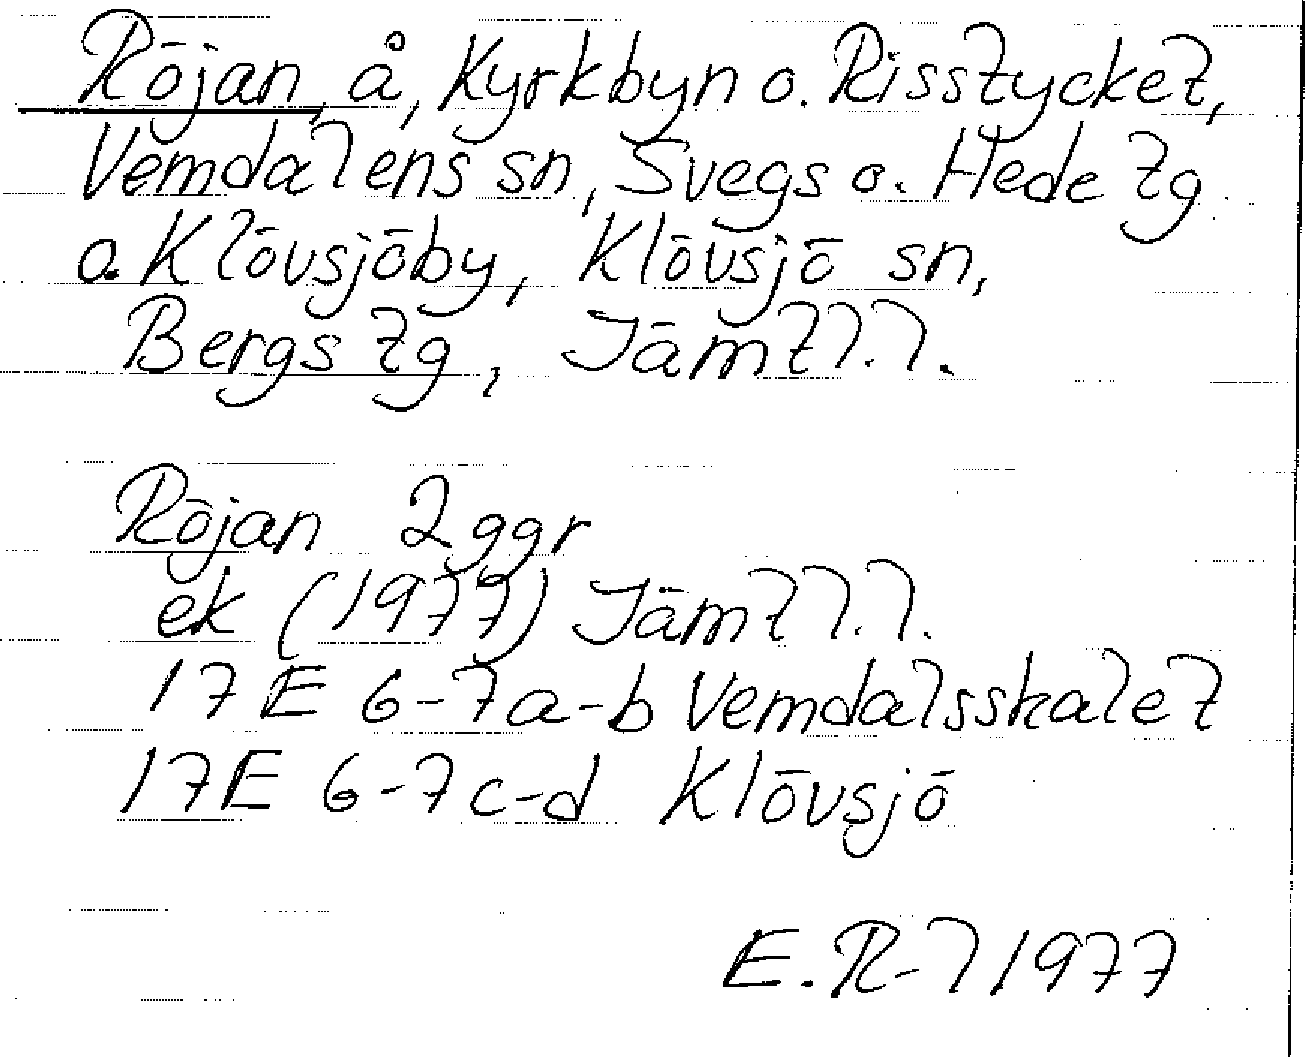 Röjan, å, Kyrkbyn o. Risstycket,
Vemdalens sn, Svegs o. Hede tg
o. Klövsjöby, Klövsjö sn,
Bergs tg, Jämtl. l.
Röjan 2 ggr
ek (1977) Jämtl. l.
17E 6-7a-b Vemdalsskalet
17E 6-7c-d Klövsjö
E.R-l 1977